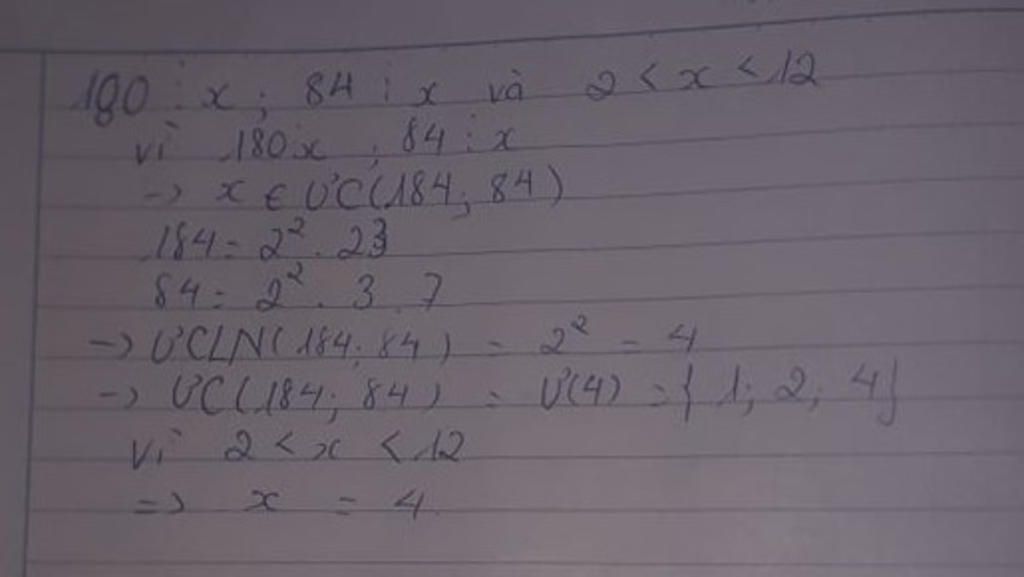 180 ⋮ x ; 84 ⋮ x và 2 < x < 12
vì 180 ⋮ x ; 84 ⋮ x
→ x ∈ ƯC(184; 84)
184 = 2² . 23
84 = 2² . 3 . 7
→ ƯCLN(184; 84) = 2² = 4
→ ƯC(184; 84) = Ư(4) = { 1; 2; 4}
vì 2 < x < 12
=> x = 4